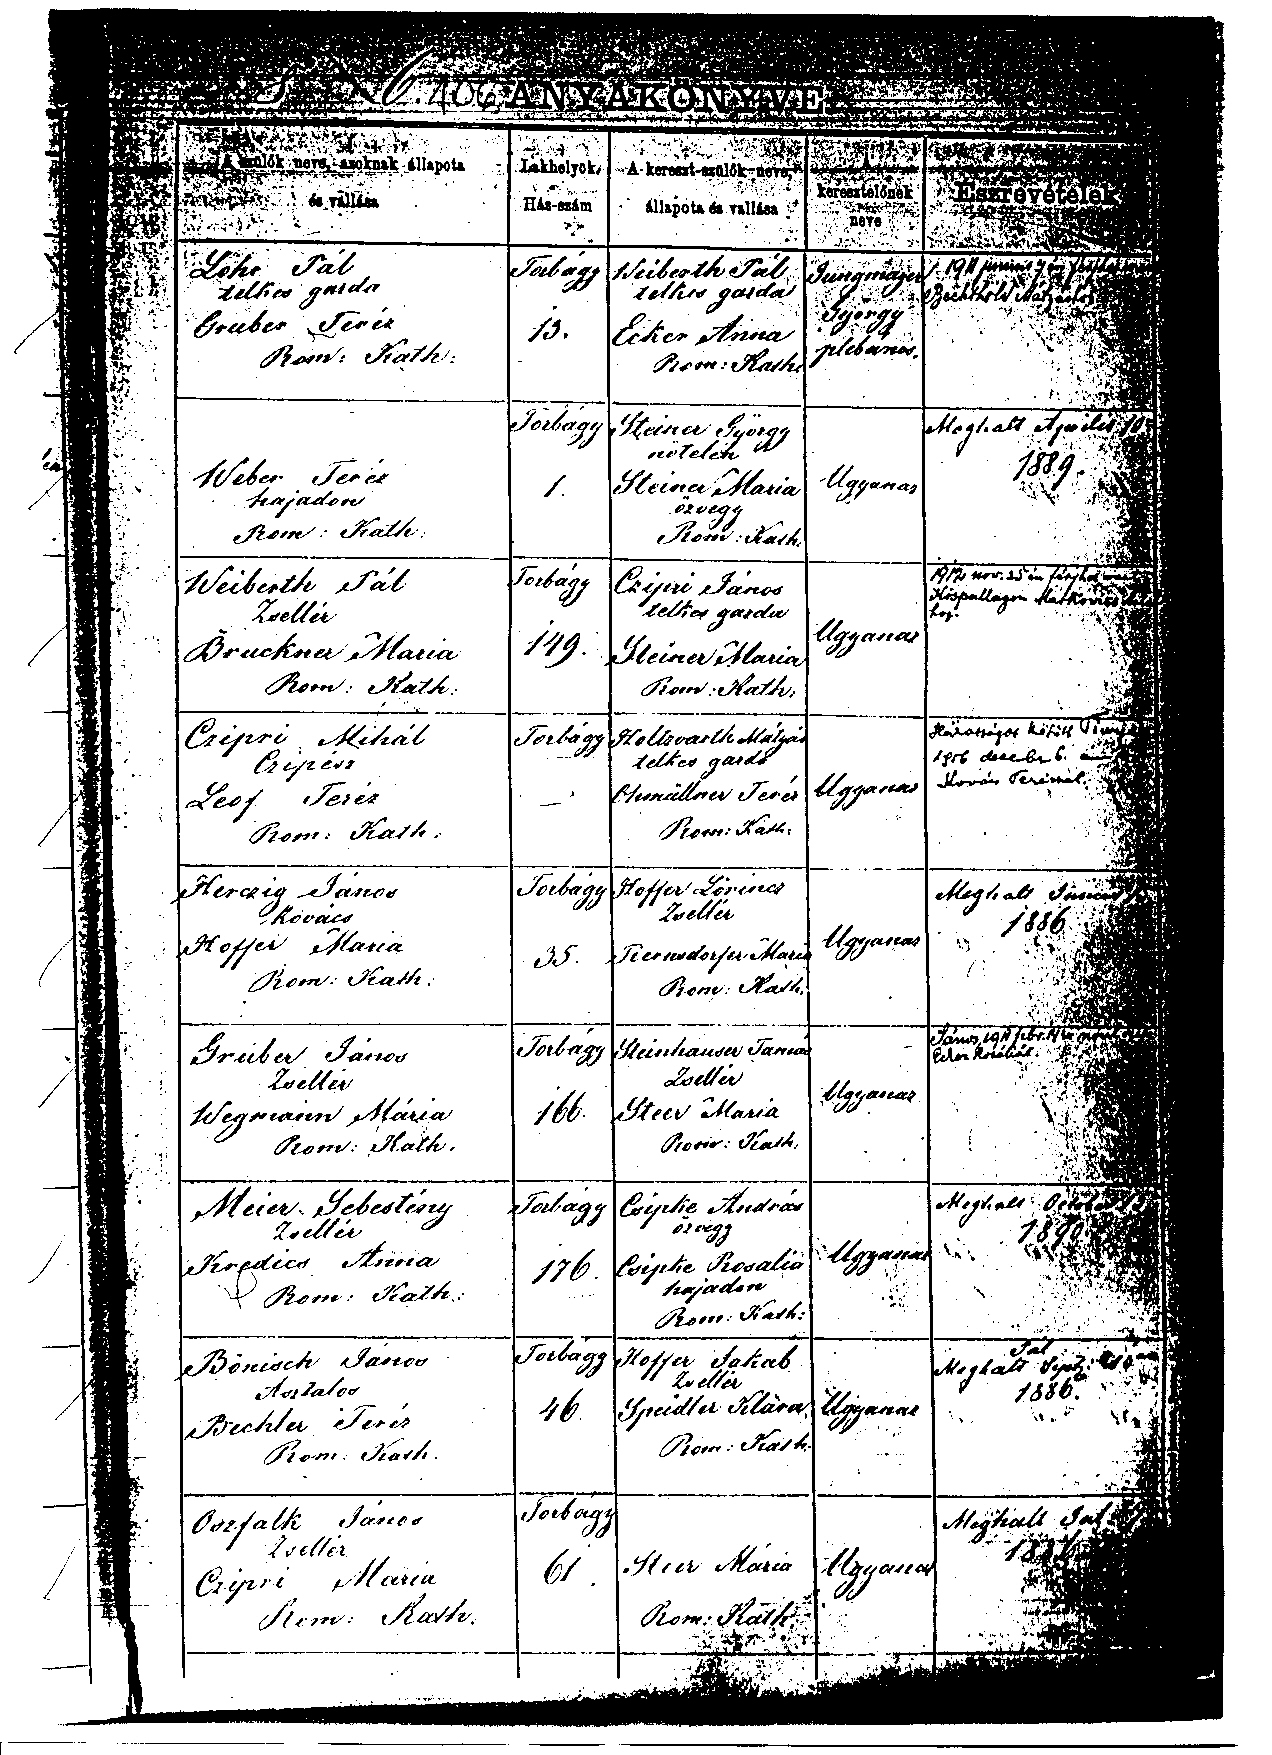 406 ANYAKÖNYVE
A szülők neve, azoknak állapota
és vallása
Lakhelyök,
Ház-szám
A kereszt-szülők neve,
állapota és vallása
A
keresztelőnek
neve
Észrevételek
Lohr Pál
telkes gazda
Gruber Teréz
Rom: Kath:
Torbágy
13.
Weiberth Pál
telkes gazda
Ecker Anna
Rom: Kath.
Jungmayer
György
plébános.
1911 junius 7 én
Weber Teréz
hajadon
Rom: Kath:
Torbágy
1.
Steiner György
nőtelen
Steiner Maria
özvegy
Rom: Kath.
Ugyanaz
Meghalt Április 10
1889.
Weiberth Pál
Zsellér
Bruckner Maria
Rom: Kath:
Torbágy
149.
Czipri János
telkes gazda
Steiner Maria
Rom: Kath.
Ugyanaz
nov. 25 én
hoz.
Czipri Mihál
Czipész
Leof Teréz
Rom: Kath.
Torbágy
—
Holtzvarth Mátyás
telkes gazda
Teréz
Rom: Kath:
Ugyanaz
Házasságot kötött
1906 decebr 6. án
Kovács Terézzel.
Herczig János
Kovács
Hoffer Maria
Rom: Kath.
Torbágy
35.
Hoffer Lőrincz
Zsellér
Maria
Rom: Kath.
Ugyanaz
Meghalt
1886
Gruber János
Zsellér
Wegmann Mária
Rom: Kath.
Torbágy
166.
Steinhauser Tamás
Zsellér
Steer Maria
Rom: Kath.
Ugyanaz
János, 1911 febr.
Meier Sebestény
Zsellér
Kredics Anna
Rom: Kath.:
Torbágy
176.
Csipke András
özvegy
Csipke Rosalia
hajadon
Rom: Kath:
Ugyanaz
Meghalt October
1890
Bönisch János
Asztalos
Bechler Teréz
Rom: Kath.
Torbágy
46
Hoffer Jakab
Zsellér
Speidler Klára
Rom: Kath.
Ugyanaz
Pál
Meghalt Sept.
1886.
Oszfalk János
Zsellér
Czipri Maria
Rom: Kath.
Torbágy
61.
Steer Mária
Rom: Kath
Ugyanaz
Meghalt